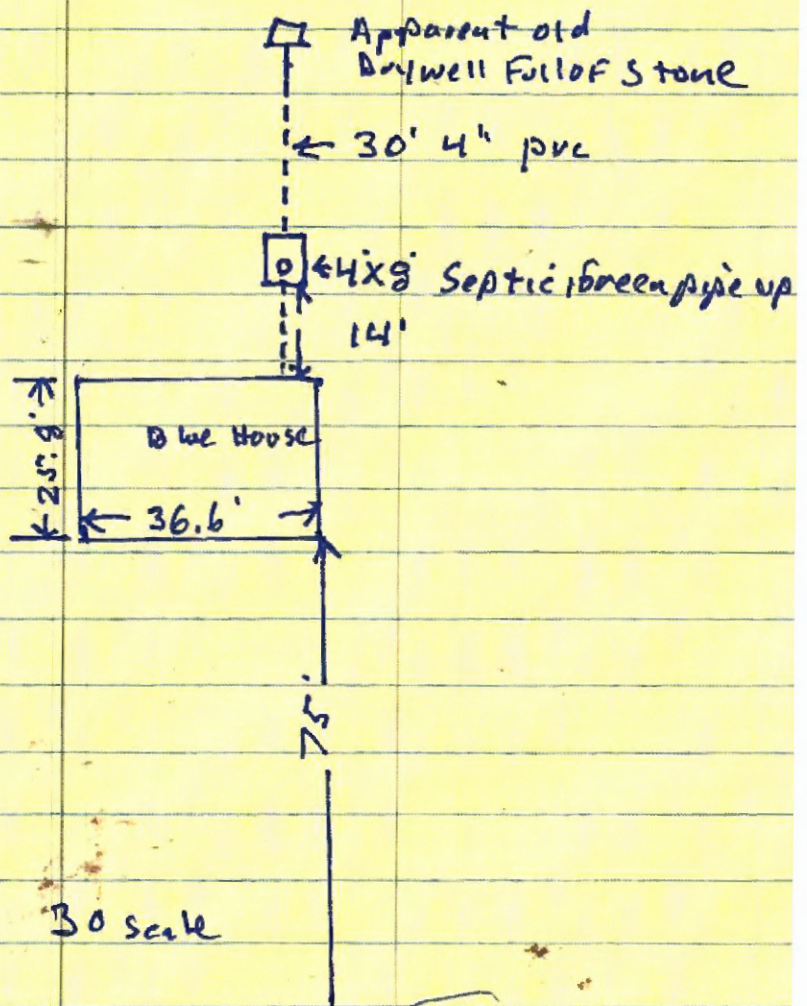 Apparent old
Drywell Full of Stone
← 30' 4" pvc
←4'x8' Septic, Green pipe up
14'
25.8'
Blue House
36.6'
75'
30 scale